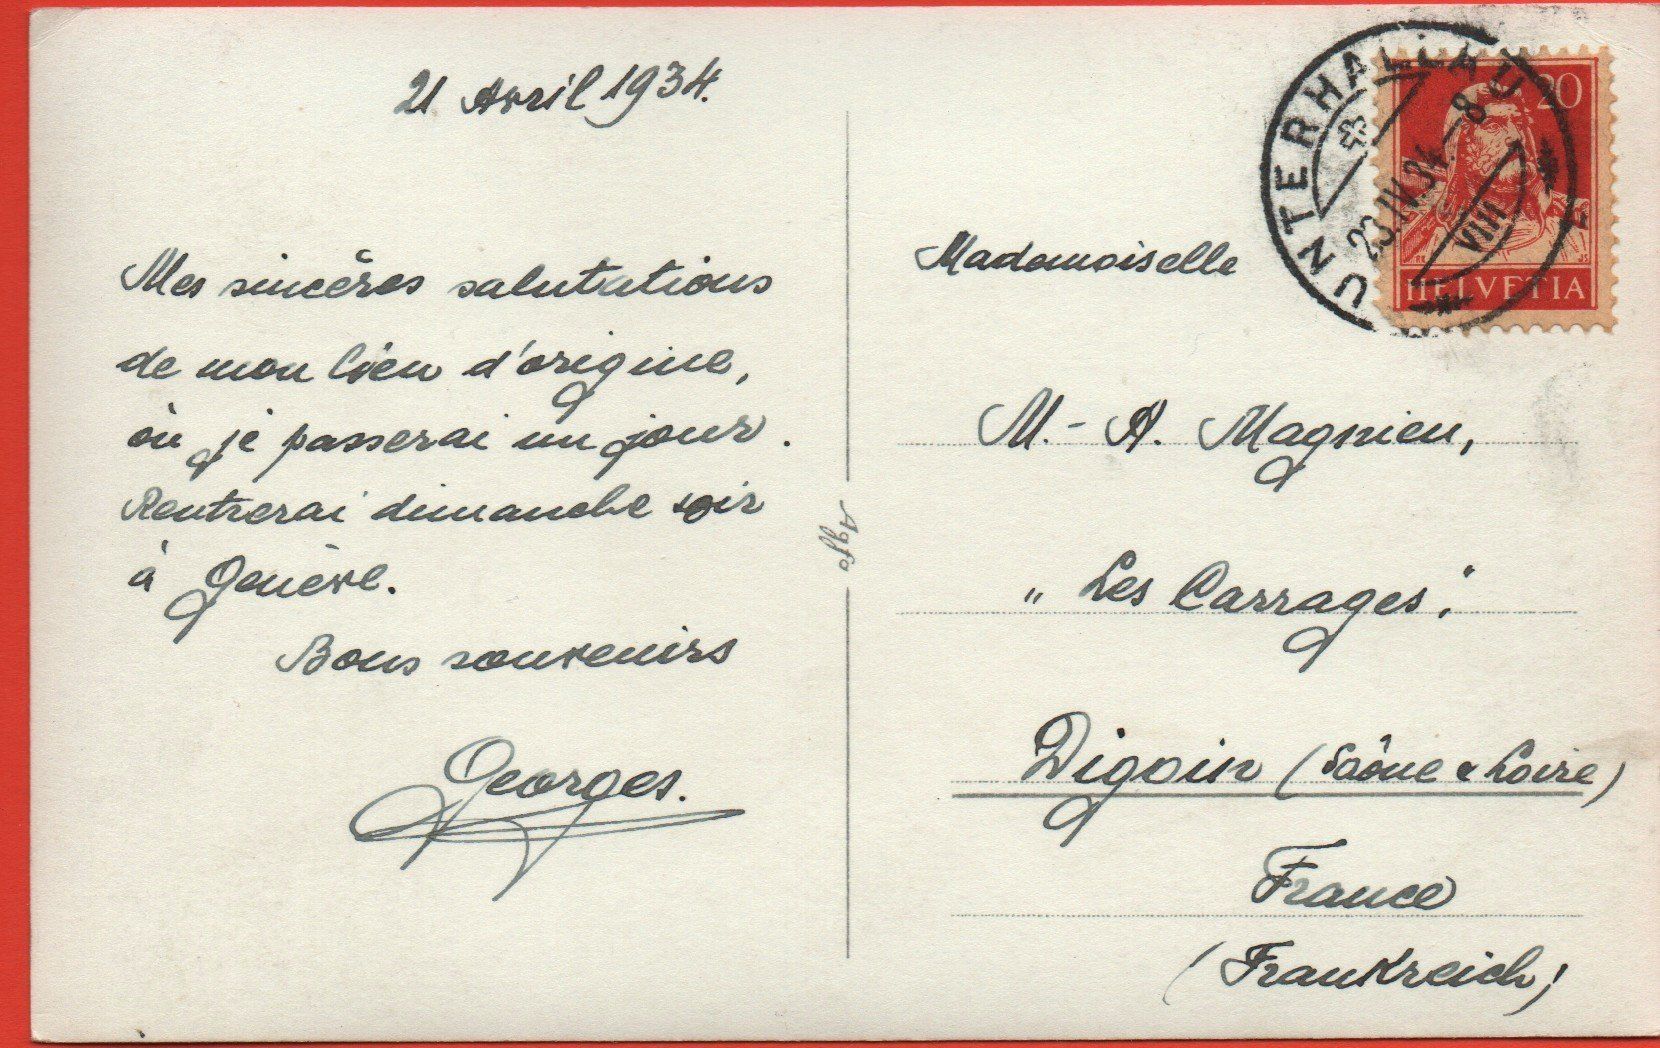 21 Avril 1934.
Mes sincères salutations
de mon lieu d'origine,
où je passerai un jour.
Rentrerai dimanche soir
à Genève.
Bons souvenirs
Georges.
Agfa
UNTERHALLAU
23.IV.34.–8
VIII
20
HELVETIA
Mademoiselle
M.-A. Magnien,
„Les Carrages".
Digoin (Saône & Loire)
France
(Frankreich)